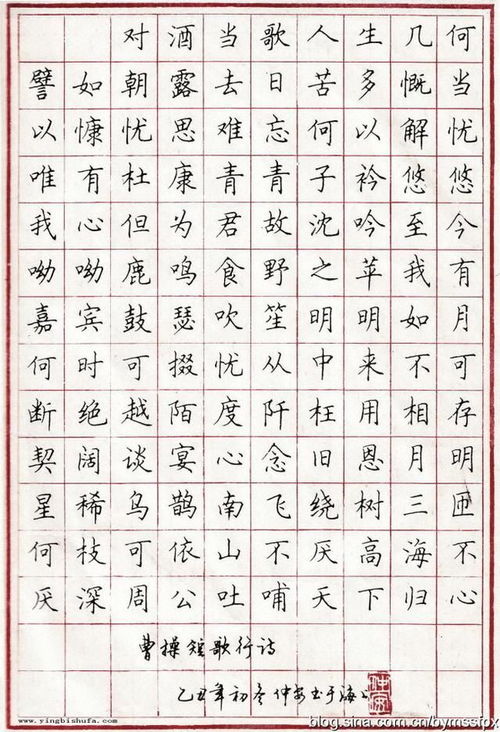 对酒当歌人生几何
譬如朝露去日苦多慨当
以慷忧思难忘何以解忧
唯有杜康青青子衿悠悠
我心但为君故沈吟至今
呦呦鹿鸣食野之苹我有
嘉宾鼓瑟吹笙明明如月
何时可掇忧从中来不可
断绝越陌度阡枉用相存
契阔谈宴心念旧恩月明
星稀乌鹊南飞绕树三匝
何枝可依山不厌高海不
厌深周公吐哺天下归心
曹操短歌行诗
乙丑年初冬仲安书于海上
www.yingbishufa.com
blog.sina.com.cn/bymssfpx